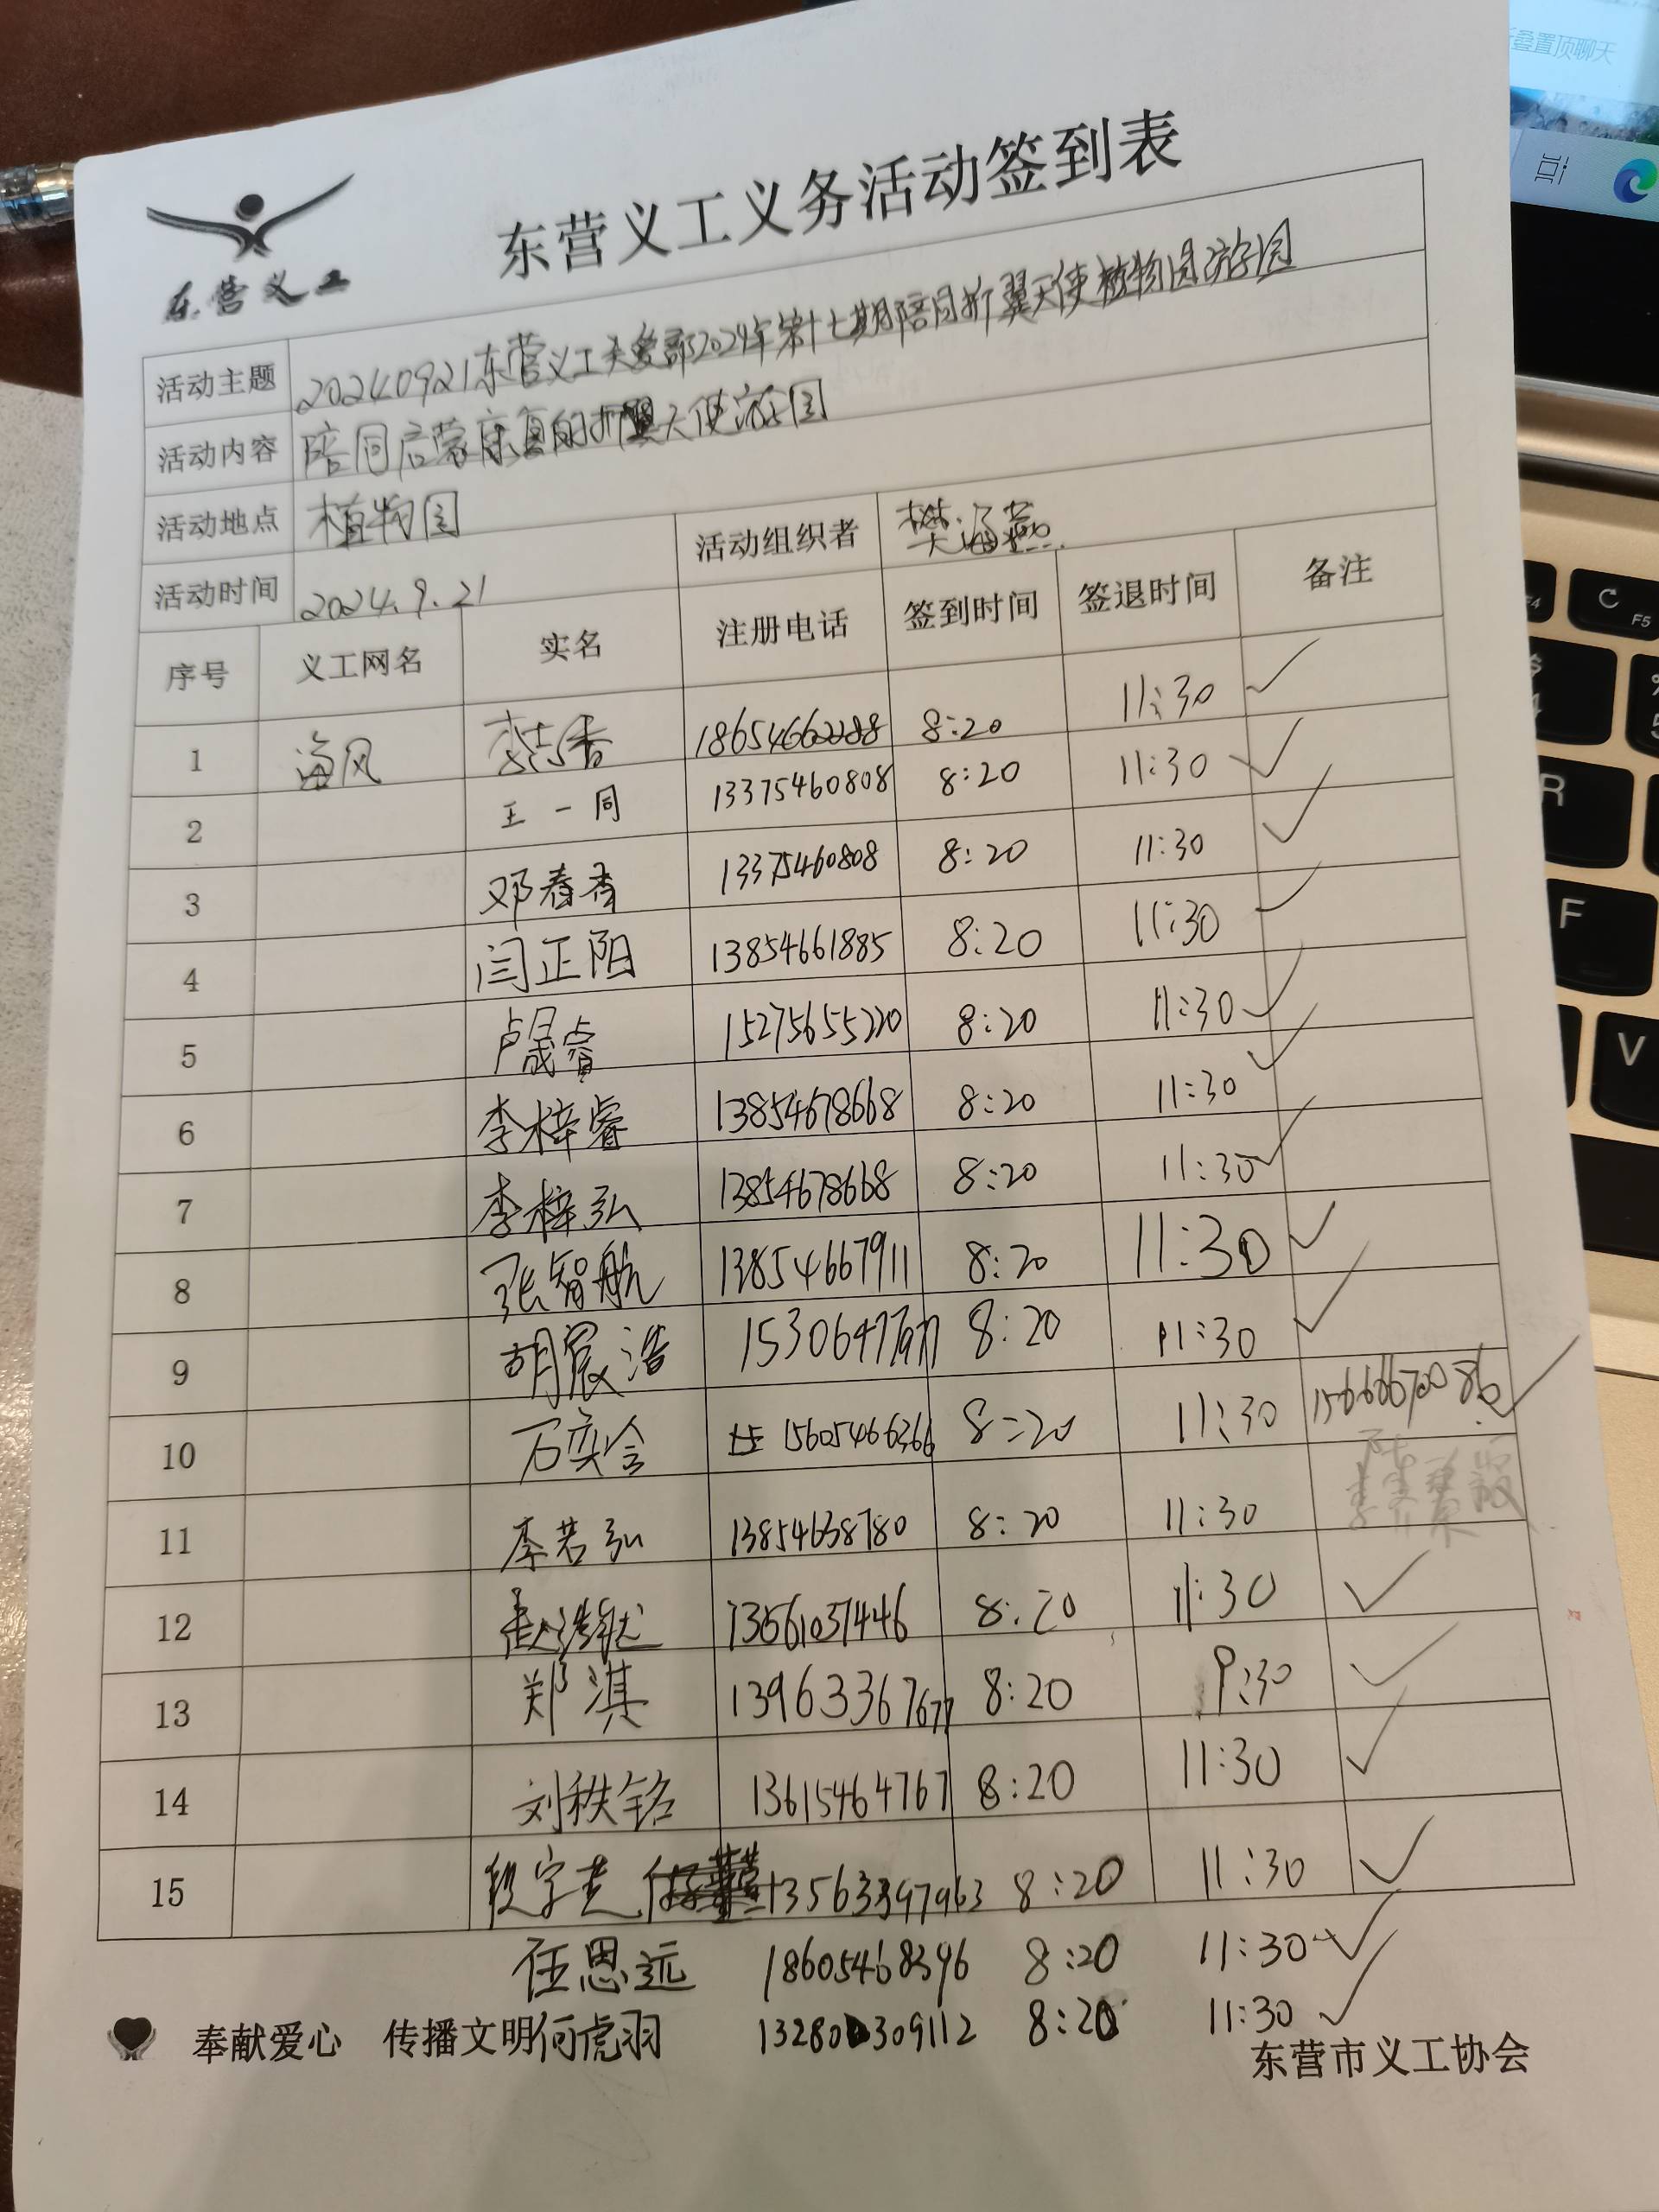 叠置顶聊天
东营义工义务活动签到表
东营义工
活动主题 20240921东营义工关爱部2024年第十七期陪同折翼天使植物园游园
活动内容 陪同启蒙康复的折翼天使游园
活动地点 植物园 活动组织者 樊海燕
活动时间 2024.9.21
序号 义工网名 实名 注册电话 签到时间 签退时间 备注
1 海风 李志香 18654662288 8:20 11:30 ✓
2 王一同 13375460808 8:20 11:30 ✓
3 邓春香 13375460808 8:20 11:30 ✓
4 闫正阳 13854661885 8:20 11:30 ✓
5 卢晟睿 15275655220 8:20 11:30 ✓
6 李梓睿 13854678668 8:20 11:30 ✓
7 李梓弘 13854678668 8:20 11:30 ✓
8 张智航 13854667911 8:20 11:30 ✓
9 胡宸浩 8:20 11:30 ✓
10 石奕含 15605466366 8:20 11:30 ✓
11 李若弘 13854638780 8:20 11:30
12 13561031446 8:20 11:30 ✓
13 郑淇 13963367677 8:20 9:30 ✓
14 刘秩铭 13615464767 8:20 11:30 ✓
15 13563397963 8:20 11:30 ✓
任恩远 18605468396 8:20 11:30 ✓
何虎羽 8:20 11:30 ✓
奉献爱心 传播文明
东营市义工协会
F4
C F5
R
F
V